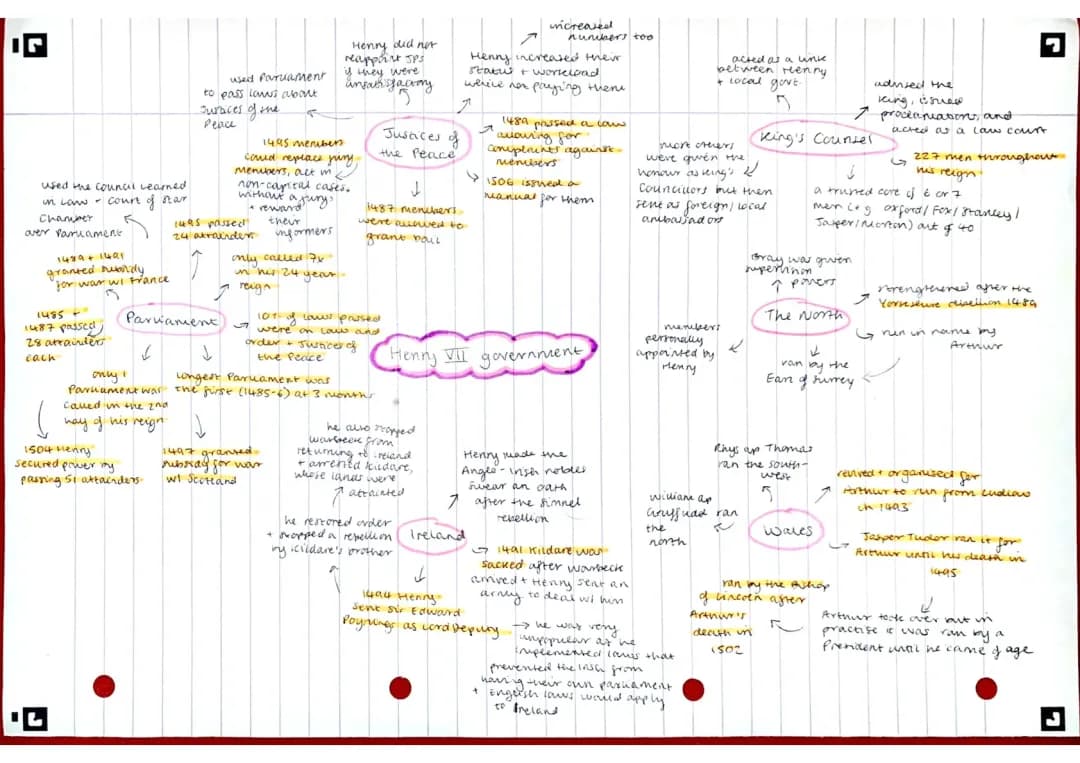 increased
numbers too
Henry did not
reappoint JPs
if they were
unsatisfactory
Henry increased their
status + workload
while not paying them
used Parliament
to pass laws about
Justices of the
Peace
Justices of
the Peace
1489 passed a law
allowing for
complaints against
members
1506 issued a
manual for them
1487 members
were allowed to
grant bail
1495 members
could replace jury
members, act in
non-capital cases
without a jury,
+ reward
their
informers
acted as a link
between Henry
+ local govt.
advised the
King, issued
proclamations, and
acted as a law court
King's Counsel
227 men throughout
his reign
a trusted core of 6 or 7
men (e.g. Oxford/Fox/Stanley/
Jasper/Morton) out of 40
most others
were given the
honour as King's
Councillors but then
sent as foreign/local
ambassadors
used the Council Learned
in Law - Court of Star
Chamber
over Parliament
1495 passed
24 attainders
only called 7x
in his 24 year
reign
1489 + 1491
granted subsidy
for war w/ France
Parliament
10% of laws passed
were on law and
order + Justices of
the Peace
1485 +
1487 passed
28 attainders
each
only 1
Parliament was
called in the 2nd
half of his reign
longest Parliament was
the first (1485-6) at 3 months
1504 Henry
secured power by
passing 51 attainders
1497 granted
subsidy for war
w/ Scotland
Henry VII government
Gray was given
supervision
powers
strengthened after the
Yorkshire rebellion 1489
The North
run in name by
Arthur
ran by the
Earl of Surrey
members
personally
appointed by
Henry
he also stopped
Warbeck from
returning to Ireland
+ arrested Kildare,
whose lands were
attainted
Henry made the
Anglo-Irish nobles
swear an oath
after the Simnel
rebellion
he restored order
+ stopped a rebellion
by Kildare's brother
Ireland
1491 Kildare was
sacked after Warbeck
arrived + Henry sent an
army to deal w/ him
1494 Henry
sent Sir Edward
Poynings as Lord Deputy
he was very
unpopular as he
implemented laws that
prevented the Irish from
having their own parliament
+ English laws would apply
to Ireland
Rhys ap Thomas
ran the south-
west
revived + organised for
Arthur to run from Ludlow
in 1493
William ap
Gruffudd ran
the
north
Wales
Jasper Tudor ran it for
Arthur until his death in
1495
Arthur took over but in
practise it was ran by a
President until he came of age
ran by the Bishop
of Lincoln after
Arthur's
death in
1502